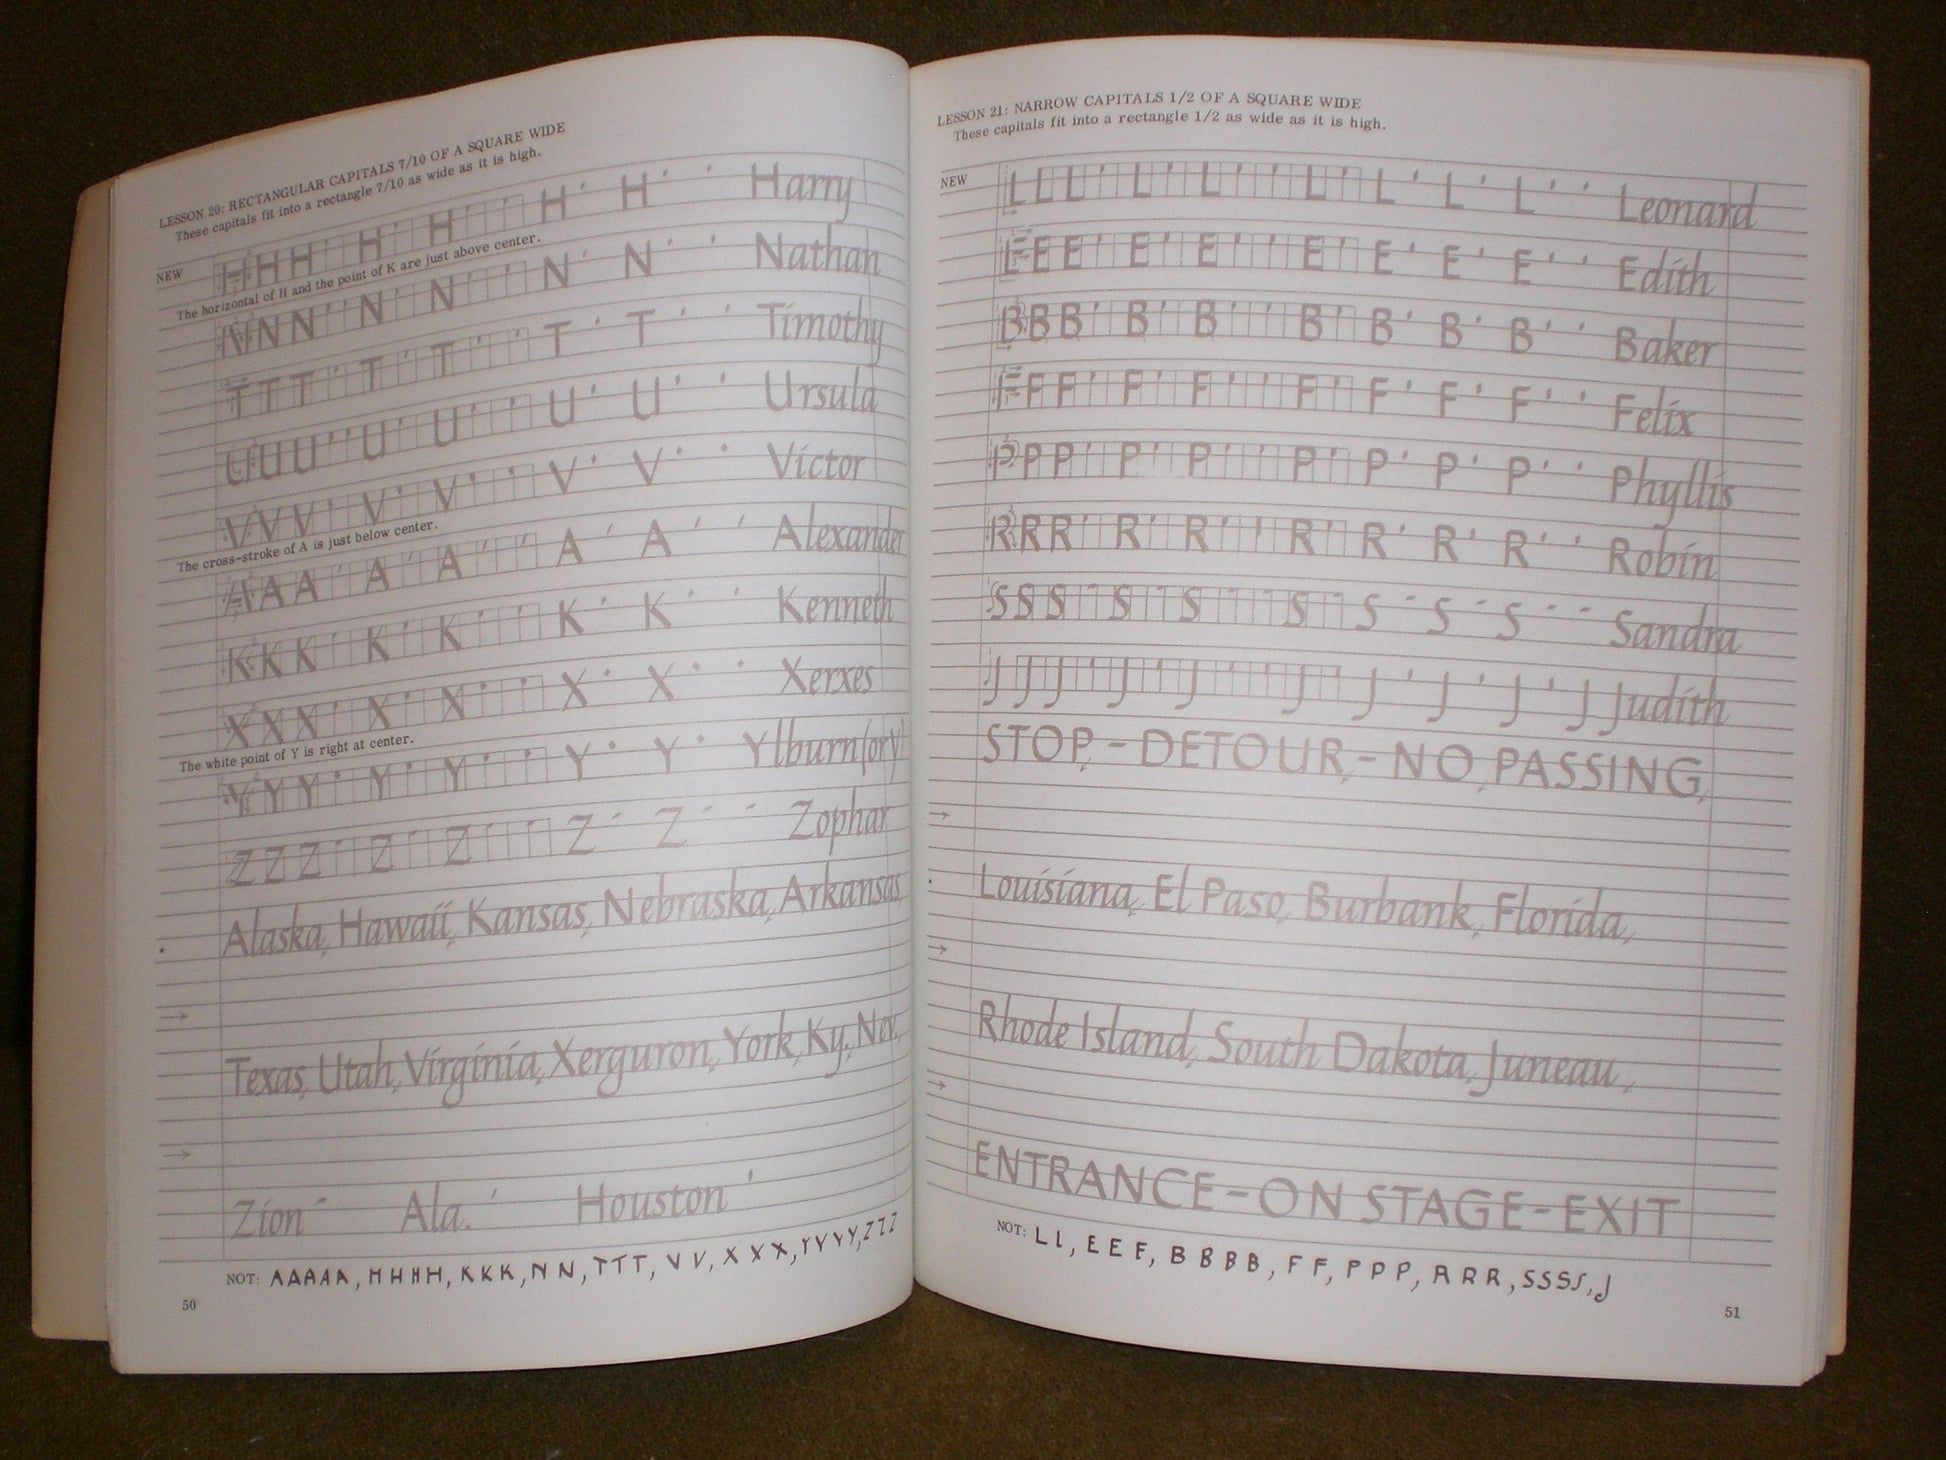 LESSON 20: RECTANGULAR CAPITALS 7/10 OF A SQUARE WIDE
These capitals fit into a rectangle 7/10 as wide as it is high.
NEW
H H H H H H H Harry
The horizontal of H and the point of K are just above center.
N N N N N N N Nathan
T T T T T T T Timothy
U U U U U U U Ursula
V V V V V V V Victor
The cross-stroke of A is just below center.
A A A A A A A Alexander
K K K K K K K Kenneth
X X X X X X X Xerxes
The white point of Y is right at center.
Y Y Y Y Y Y Y Ylburn (or y)
Z Z Z Z Z Z Z Zophar
Alaska, Hawaii, Kansas, Nebraska, Arkansas,
Texas, Utah, Virginia, Xerguron, York, Ky., Nev.
Zion Ala. Houston
NOT: AAAAA, HHHH, KKK, NN, TTT, VV, XXX, YYYY, ZZZ
50
LESSON 21: NARROW CAPITALS 1/2 OF A SQUARE WIDE
These capitals fit into a rectangle 1/2 as wide as it is high.
NEW
L L L L L L L L L Leonard
E E E E E E E E E Edith
B B B B B B B B B Baker
F F F F F F F F F Felix
P P P P P P P P P Phyllis
R R R R R R R R R Robin
S S S S S S S S S Sandra
J J J J J J J J J J Judith
STOP, - DETOUR, - NO, PASSING,
Louisiana, El Paso, Burbank, Florida,
Rhode Island, South Dakota, Juneau,
ENTRANCE - ON STAGE - EXIT
NOT: LL, EEE, BBBB, FF, PPP, RRR, SSSS, J
51